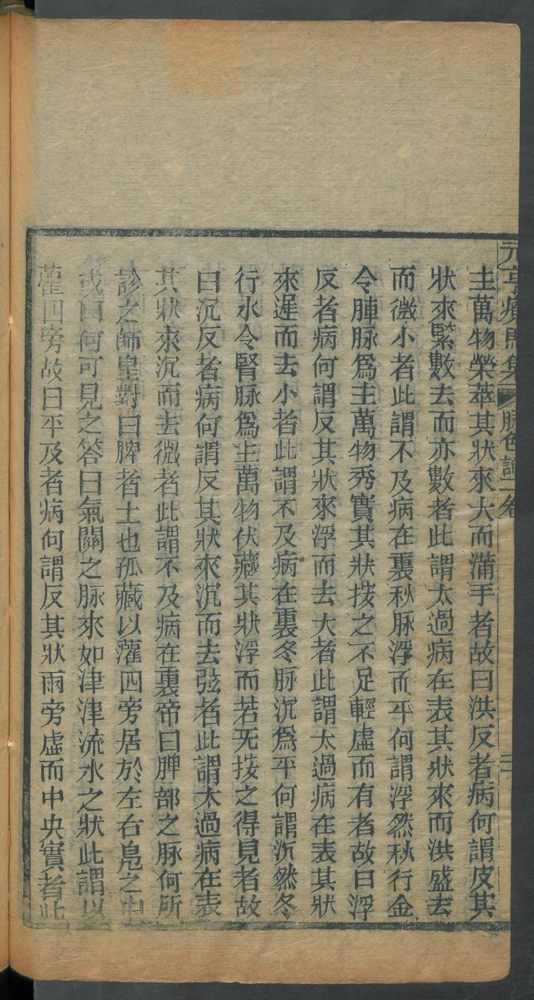 元亨療馬集 脉色論一卷
主萬物榮華其狀來大而滿手者故曰洪反者病何謂皮其
狀來緊數去而亦數者此謂太過病在表其狀來而洪盛去
而微小者此謂不及病在裏秋脉浮而平何謂浮然秋行金
令肺脉爲主萬物秀實其狀按之不足輕虛而有者故曰浮
反者病何謂反其狀來浮而去大者此謂太過病在表其狀
來遲而去小者此謂不及病在裏冬脉沉爲平何謂沉然冬
行水令腎脉爲主萬物伏藏其狀浮而若无按之得見者故
曰沉反者病何謂反其狀來沉而去弦者此謂太過病在表
其狀來沉而去微者此謂不及病在裏帝曰脾部之脉何所
診之師皇對曰脾者土也孤藏以灌四旁居於左右鳧之中
或曰何可見之答曰氣關之脉來如津津流水之狀此謂以
灌四旁故曰平及者病何謂反其狀兩旁虛而中央實者此